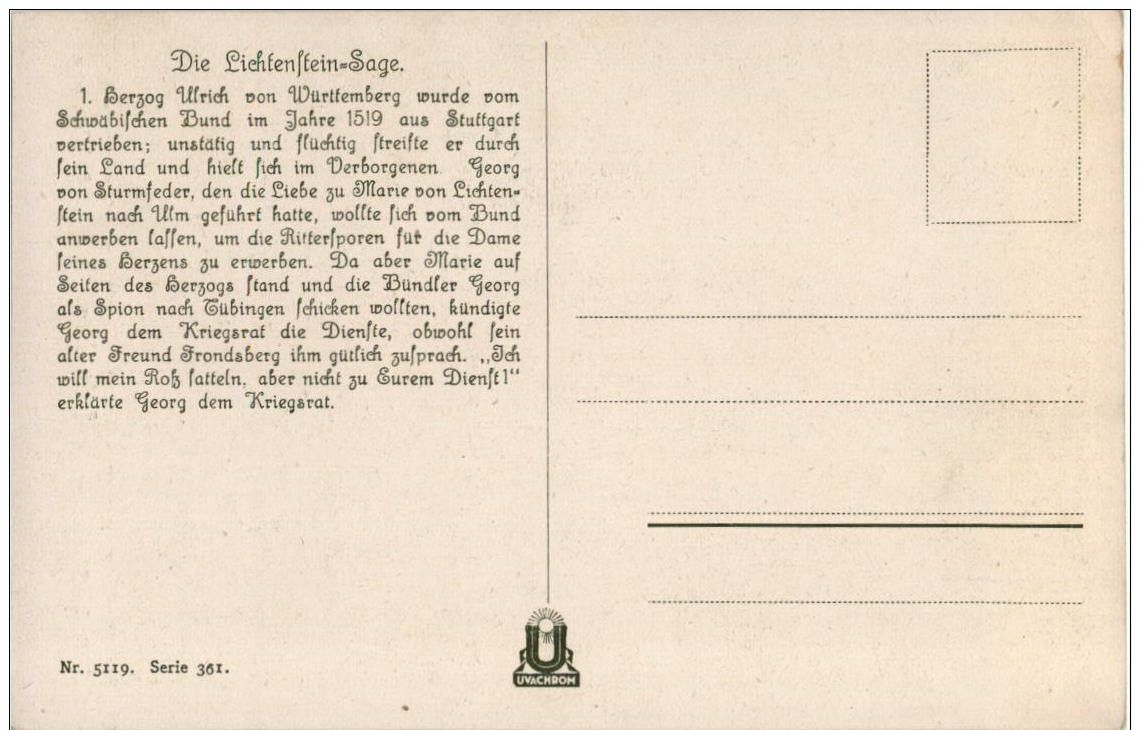 Die Lichtenſtein-Sage.
1. Herzog Ulrich von Württemberg wurde vom
Schwäbiſchen Bund im Jahre 1519 aus Stuttgart
vertrieben; unstätig und flüchtig ſtreifte er durch
ſein Land und hielt ſich im Verborgenen. Georg
von Sturmfeder, den die Liebe zu Marie von Lichten-
ſtein nach Ulm geführt hatte, wollte ſich vom Bund
anwerben laſſen, um die Ritterſporen für die Dame
ſeines Herzens zu erwerben. Da aber Marie auf
Seiten des Herzogs ſtand und die Bündler Georg
als Spion nach Tübingen ſchicken wollten, kündigte
Georg dem Kriegsrat die Dienſte, obwohl ſein
alter Freund Frondsberg ihm gütlich zuſprach. „Ich
will mein Roß ſatteln, aber nicht zu Eurem Dienſt!“
erklärte Georg dem Kriegsrat.
Nr. 5119. Serie 361.
U
UVACHROM